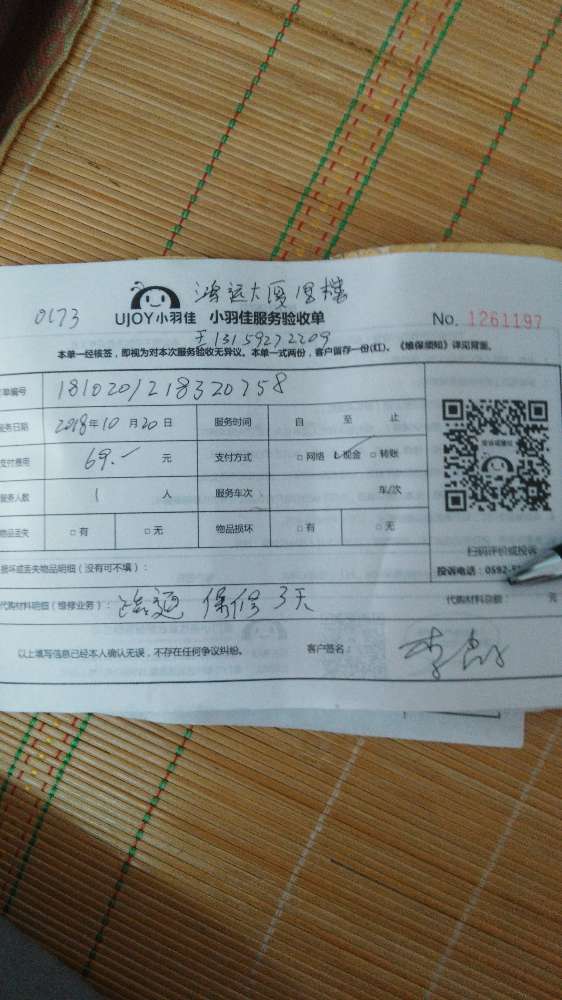 鸿远大厦8楼
0173
UJOY小羽佳 小羽佳服务验收单 No. 1261197
王13159272209
本单一经核签，即视为对本次服务验收无异议。本单一式两份，客户留存一份(红)。《维保须知》详见背面。
单编号 1810201218320758
服务日期 2018年10月20日 服务时间 自 至 止
支付费用 69.- 元 支付方式 □网络 ☑现金 □转账
服务人数 1 人 服务车次 车/次
物品丢失 □有 □无 物品损坏 □有 □无
扫码评价或投诉
损坏或丢失物品明细（没有可不填）： 投诉电话：0592-
代购材料明细（维修业务）： 疏通 保修3天 代购材料总额： 元
以上填写信息已经本人确认无误，不存在任何争议纠纷。 客户签名：